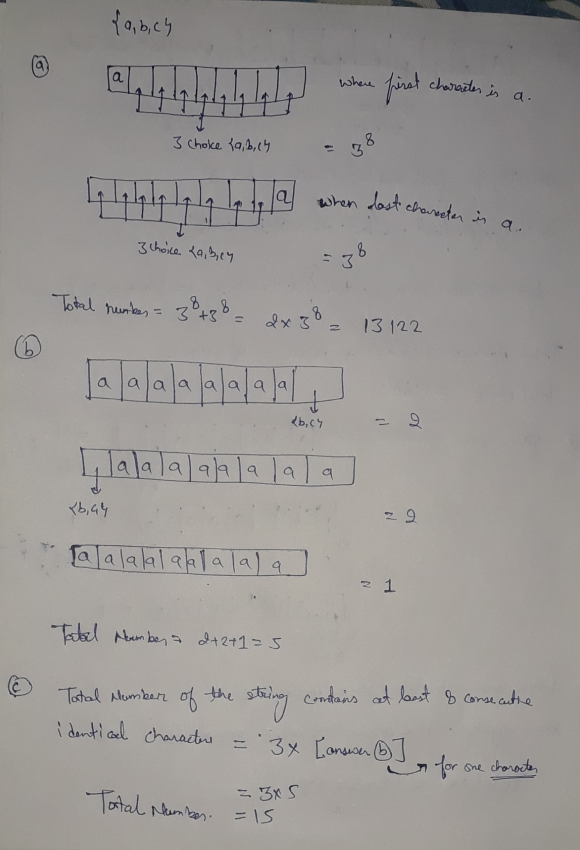 {a,b,c}
(a)
a
where first character is a.
3 choice {a,b,c}
= 3^8
a
when last character is a.
3 choice {a,b,c}
= 3^8
Total number = 3^8+3^8 = 2×3^8 = 13122
(b)
a a a a a a a a
{b,c}
= 2
a a a a a a a a
{b,c}
= 2
a a a a a a a a a
= 1
Total Number = 2+2+1 = 5
(c)
Total Number of the string contains at least 8 consecutive
identical characters = 3× [answer (b)]
→ for one character
= 3×5
Total Number. = 15